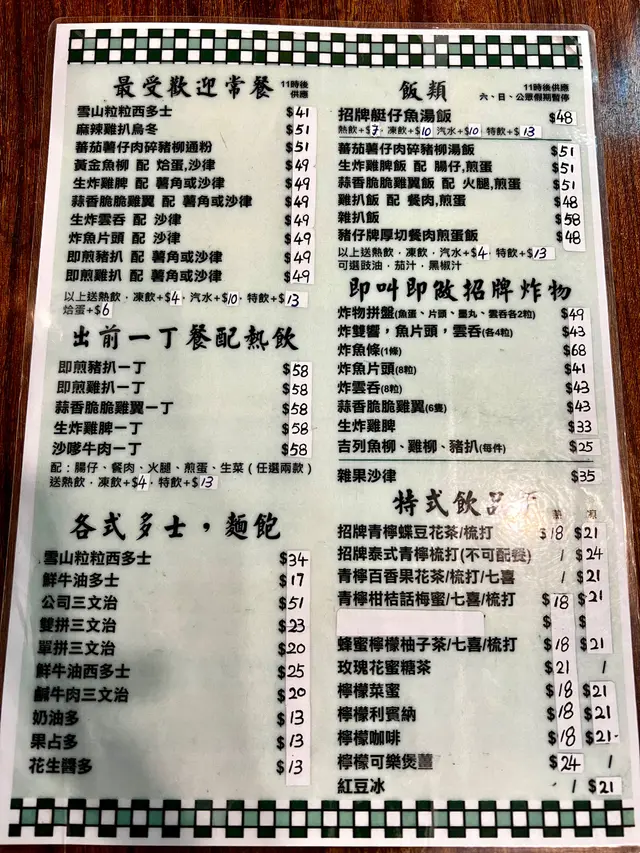 最受歡迎常餐 11時後供應
雪山粒粒西多士 $41
麻辣雞扒烏冬 $51
蕃茄薯仔肉碎豬柳通粉 $51
黃金魚柳 配 烚蛋,沙律 $49
生炸雞脾 配 薯角或沙律 $49
蒜香脆脆雞翼 配 薯角或沙律 $49
生炸雲吞 配 沙律 $49
炸魚片頭 配 沙律 $49
即煎豬扒 配 薯角或沙律 $49
即煎雞扒 配 薯角或沙律 $49
以上送熱飲．凍飲+$4．汽水+$10．特飲+$13
烚蛋+$6
出前一丁餐配熱飲
即煎豬扒一丁 $58
即煎雞扒一丁 $58
蒜香脆脆雞翼一丁 $58
生炸雞脾一丁 $58
沙嗲牛肉一丁 $58
配：腸仔、餐肉、火腿、煎蛋、生菜（任選兩款）
送熱飲．凍飲+$4．特飲+$13
各式多士，麵飽
雪山粒粒西多士 $34
鮮牛油多士 $17
公司三文治 $51
雙拼三文治 $23
單拼三文治 $20
鮮牛油西多士 $25
鹹牛肉三文治 $20
奶油多 $13
果占多 $13
花生醬多 $13
飯類 11時後供應
六、日、公眾假期暫停
招牌艇仔魚湯飯 $48
熱飲+$7．凍飲+$10 汽水+$10 特飲+$13
蕃茄薯仔肉碎豬柳湯飯 $51
生炸雞脾飯 配 腸仔,煎蛋 $51
蒜香脆脆雞翼飯 配 火腿,煎蛋 $51
雞扒飯 配 餐肉,煎蛋 $48
雜扒飯 $58
豬仔牌厚切餐肉煎蛋飯 $48
以上送熱飲．凍飲．汽水+$4．特飲+$13
可選豉油．茄汁．黑椒汁
即叫即做招牌炸物
炸物拼盤(魚蛋、片頭、墨丸、雲吞各2粒) $49
炸雙響，魚片頭，雲吞(各4粒) $43
炸魚條(1條) $68
炸魚片頭(8粒) $41
炸雲吞(8粒) $43
蒜香脆脆雞翼(6隻) $43
生炸雞脾 $33
吉列魚柳、雞柳、豬扒(每件) $25
雜果沙律 $35
特式飲品
招牌青檸蝶豆花茶/梳打 $18 $21
招牌泰式青檸梳打(不可配餐) / $24
青檸百香果花茶/梳打/七喜 / $21
青檸柑桔話梅蜜/七喜/梳打 $18 $21
$ $
蜂蜜檸檬柚子茶/七喜/梳打 $18 $21
玫瑰花蜜糖茶 $21 /
檸檬菜蜜 $18 $21
檸檬利賓納 $18 $21
檸檬咖啡 $18 $21
檸檬可樂煲薑 $24 /
紅豆冰 / $21